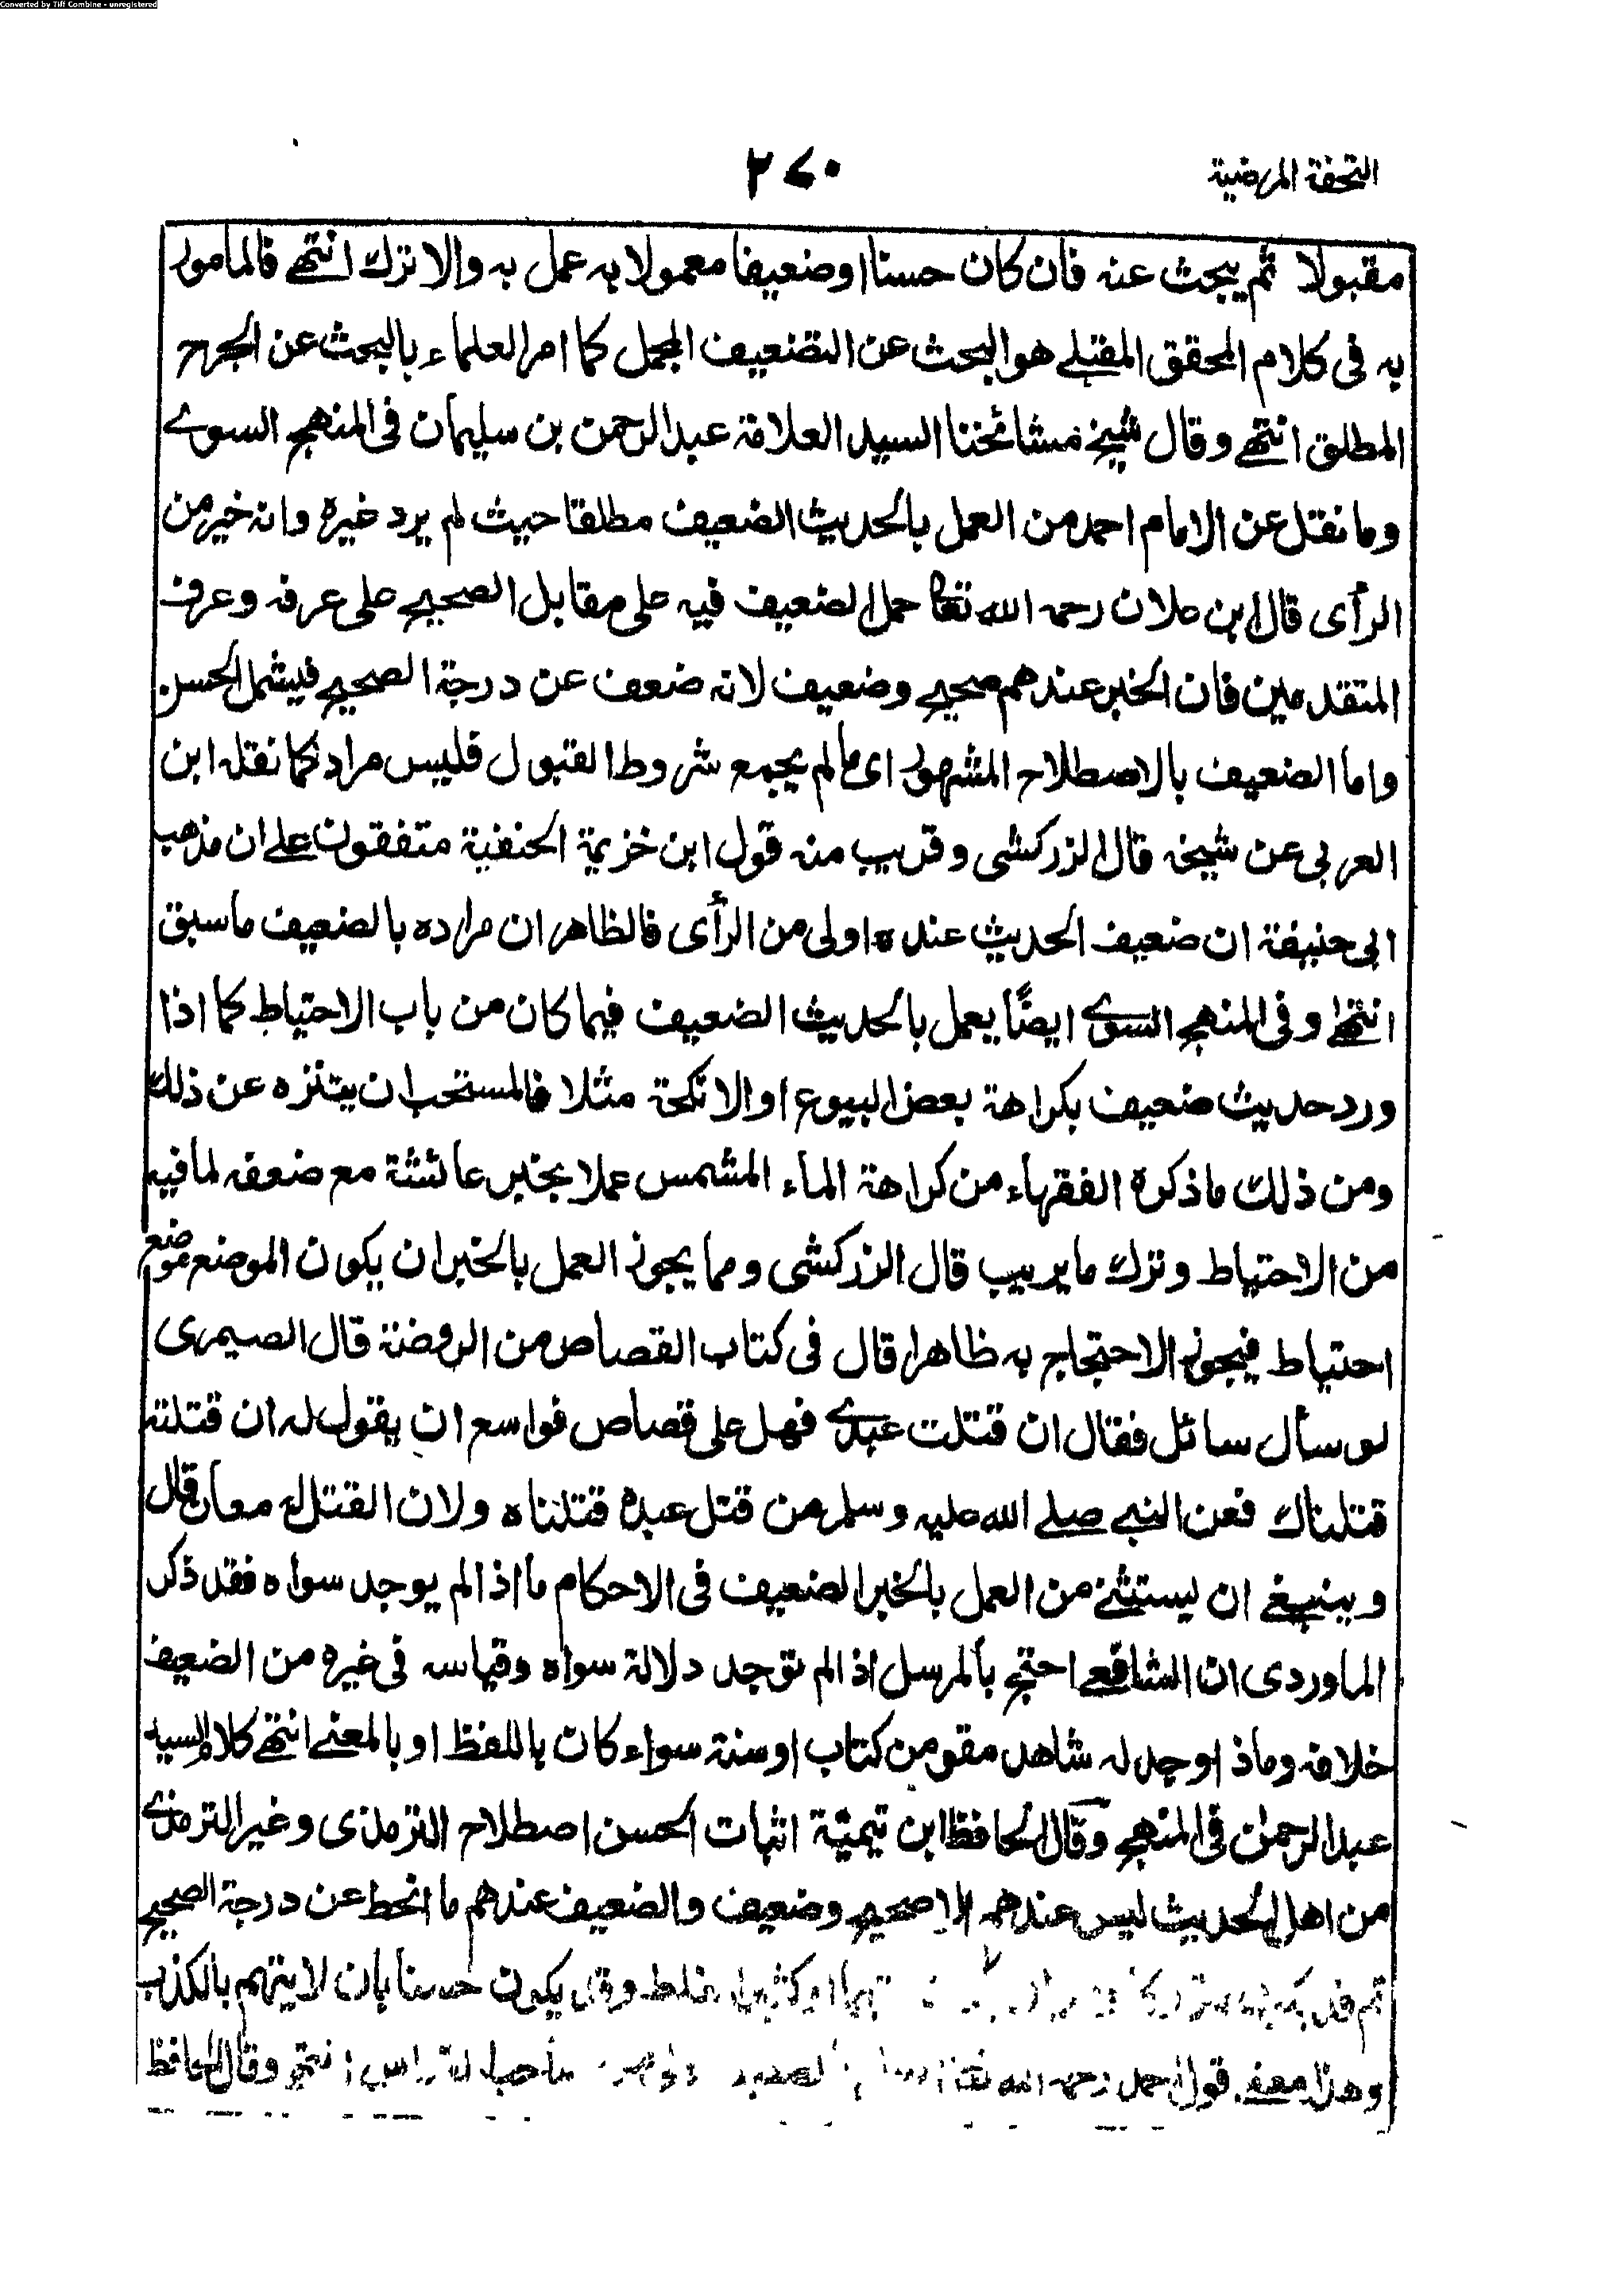 Converted by Tiff Combine - unregistered
التحفة المرضية
٢٧٠
مقبولا ثم يبحث عنه فان كان حسنا او ضعيفا معمولا به عمل به والا ترك انتهى فالمامور
به فى كلام المحقق المقبلے هو البحث عن التضعيف المجمل كما امر العلماء بالبحث عن الجرح
المطلق انتهى وقال شيخ مشائخنا السيد العلامة عبد الرحمن بن سليمان فى المنهج السوے
وما نقل عن الامام احمد من العمل بالحديث الضعيف مطلقا حيث لم يرد غيره وانه خير من
الرأى قال ابن علان رحمه الله تعالى حمل الضعيف فيه على مقابل الصحيح على عرفه وعرف
المتقدمين فان الخبر عندهم صحيح وضعيف لانه ضعف عن درجة الصحيح فيشمل الحسن
واما الضعيف بالاصطلاح المشهور اى ما لم يجمع شروط القبول فليس مراد كما نقله ابن
العربى عن شيخه قال الزركشى وقريب منه قول ابن خزيمة الحنفية متفقون على ان مذهب
ابى حنيفة ان ضعيف الحديث عنده اولى من الرأى فالظاهر ان مراده بالضعيف ما سبق
انتهى وفى المنهج السوے ايضًا يعمل بالحديث الضعيف فيما كان من باب الاحتياط كما اذا
ورد حديث ضعيف بكراهة بعض البيوع او الانكحة مثلا فالمستحب ان يتنزه عن ذلك
ومن ذلك ما ذكره الفقهاء من كراهة الماء المشمس عملا بخبر عائشة مع ضعفه لما فيه
من الاحتياط وترك ما يريب قال الزركشى ومما يجوز العمل بالخبر ان يكون الموضع موضع
احتياط فيجوز الاحتجاج به ظاهرا قال فى كتاب القصاص من الروضة قال الصيمرى
لو سأل سائل فقال ان قتلت عبدے فهل على قصاص فواسع ان يقول له ان قتلته
قتلناك فعن النبے صلے الله عليه وسلم من قتل عبده قتلناه ولان القتل له معان قال
وينبغے ان يستثنے من العمل بالخبر الضعيف فى الاحكام ما اذا لم يوجد سواه فقد ذكر
الماوردى ان الشافعے احتج بالمرسل اذا لم توجد دلالة سواه وقياسه فى غيره من الضعيف
خلافه وما ذا وجد له شاهد مقو من كتاب او سنة سواء كان باللفظ او بالمعنے انتهى كلام السيد
عبد الرحمن فى المنهج وقال الحافظ ابن تيمية اثبات الحسن اصطلاح الترمذى وغير الترمذے
من اهل الحديث ليس عندهم الا صحيح وضعيف والضعيف عندهم ما انحط عن درجة الصحيح
ثم قد يكون غلط وقد يكون حسنا بان لا يتهم بالكذب
وهذا معنے قول احمد رحمه الله انتهى وقال الحافظ